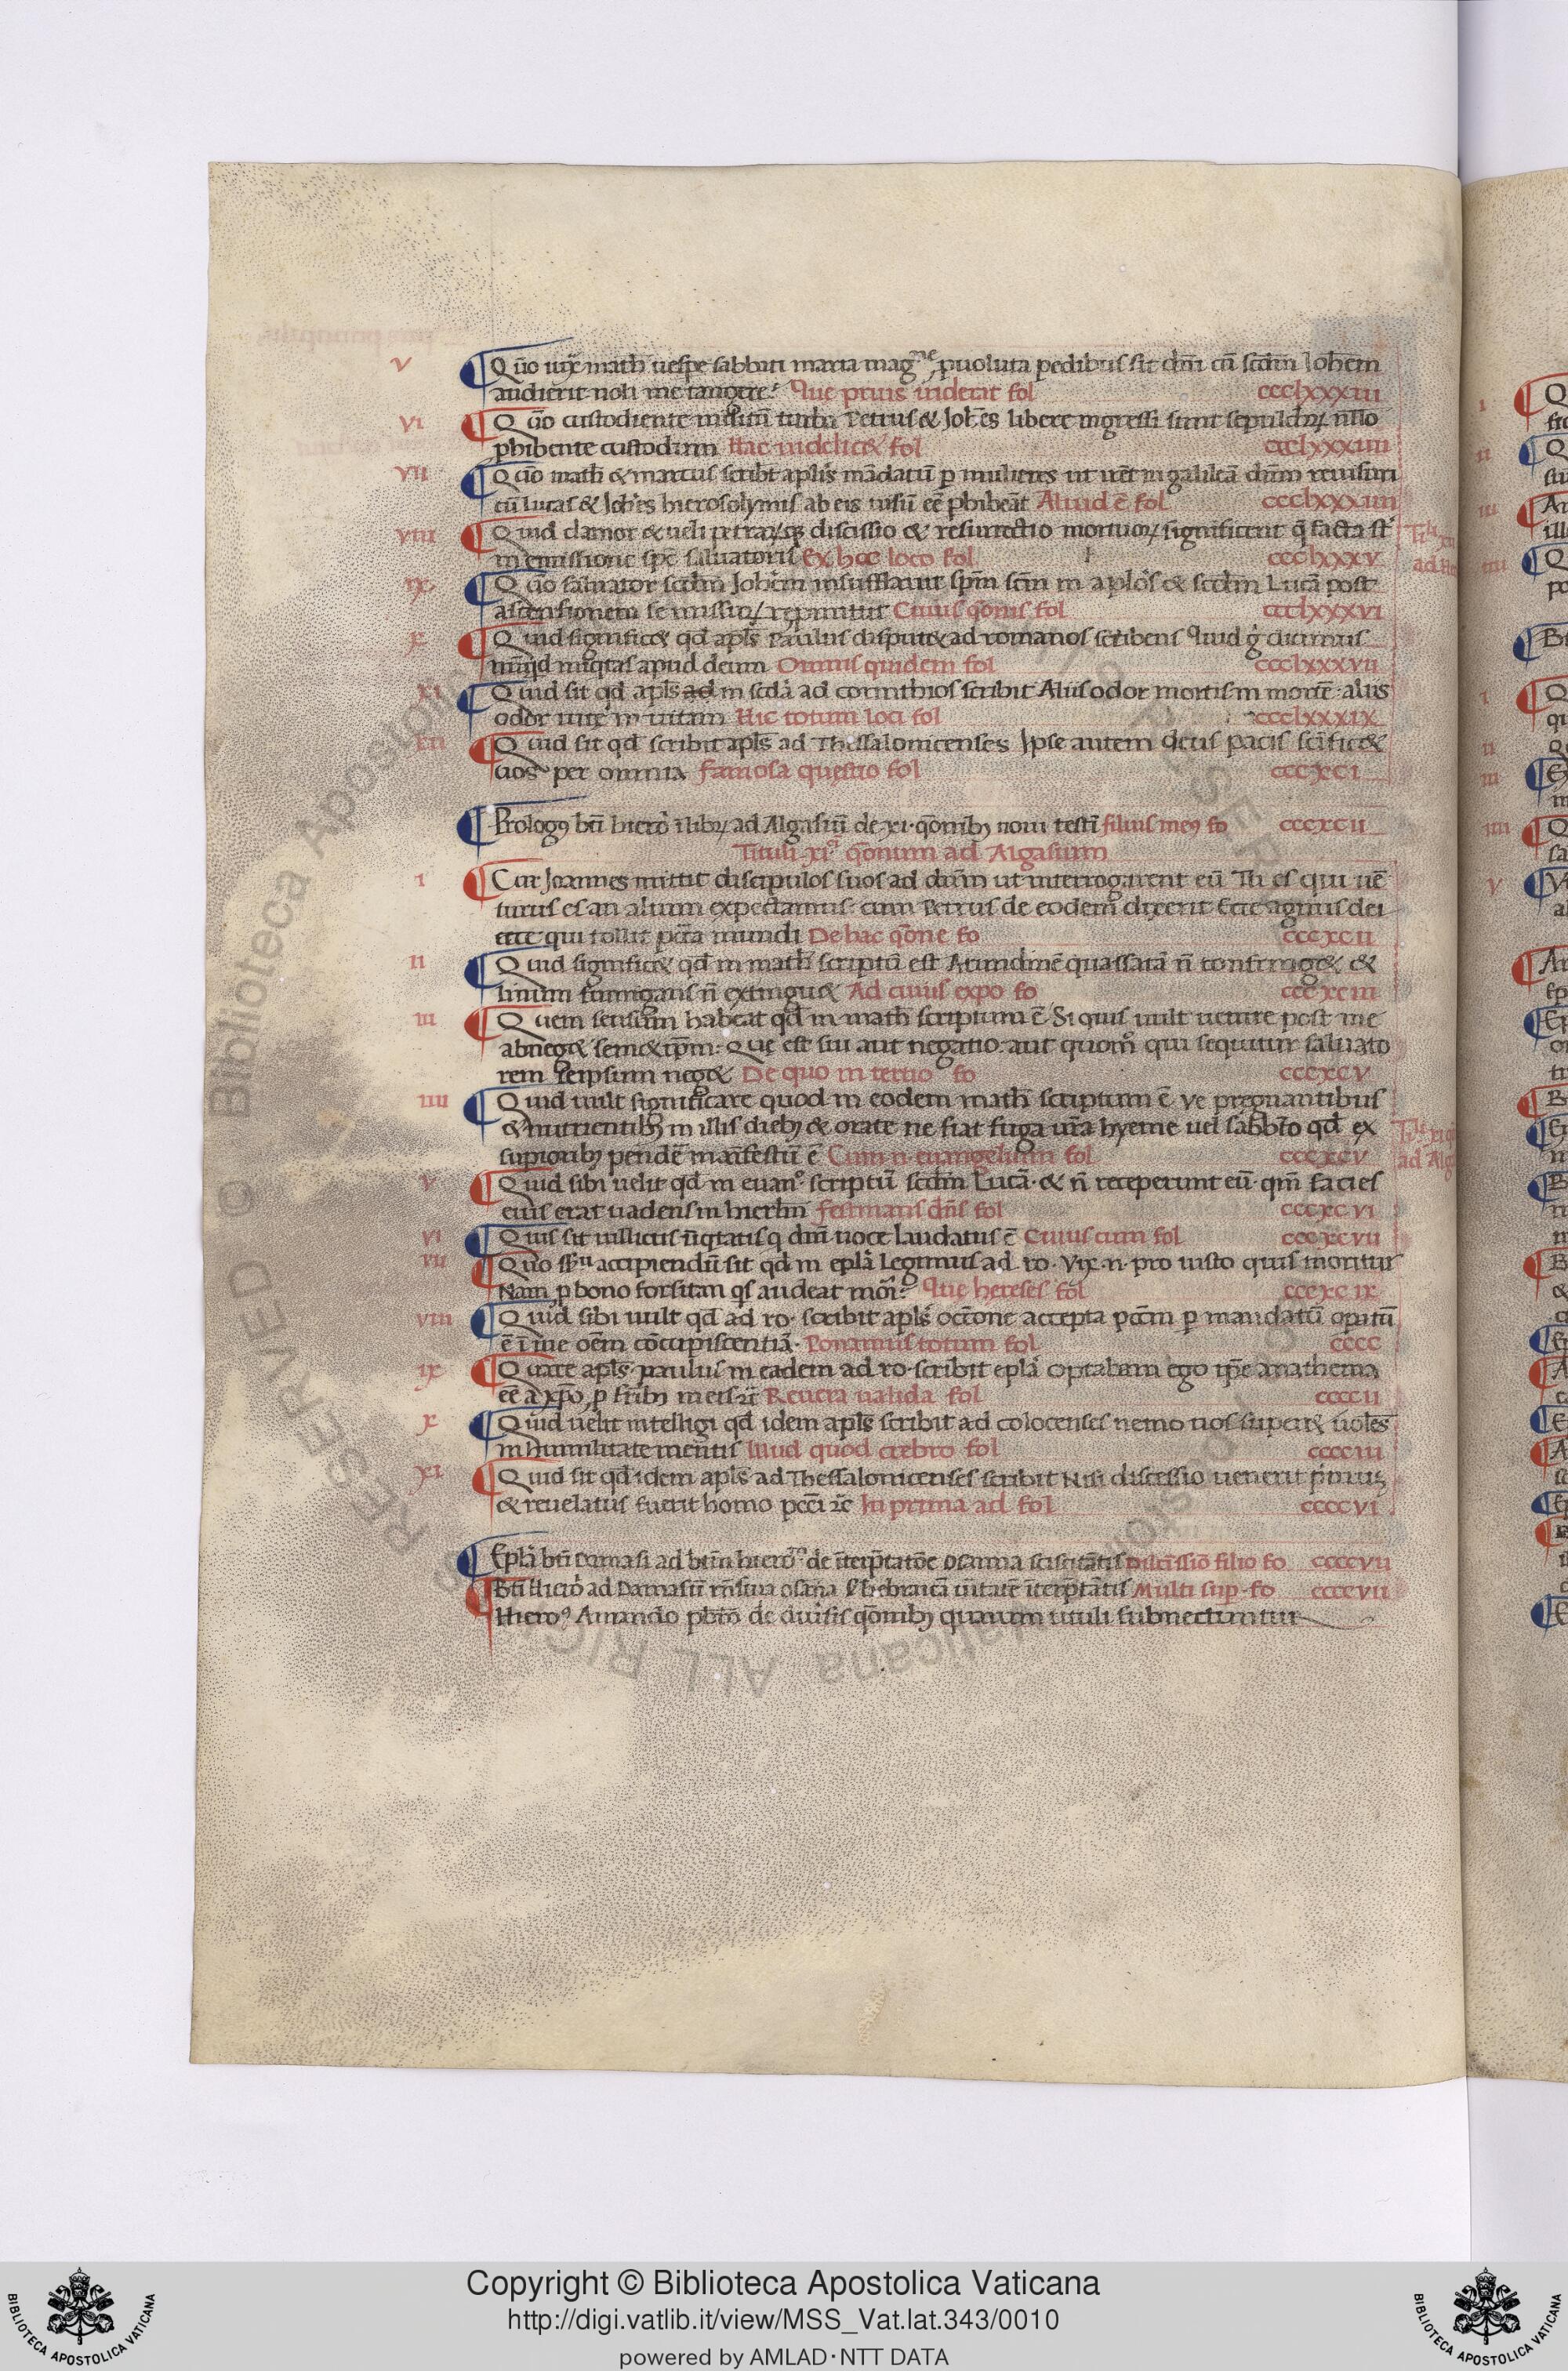 v Quo iuxͣ math̅ uespe sabbati maria magͫᵉ puoluta pedibus sit dn̅i cū scdm̅ Joh̅em
audierit noli me tangere? Que prius uiderat fol ccclxxxiii
vi Quo custodiente militū turba Petrus & Joh̅es libere ingressi sunt sepulchꝝ nullo
ꝓhibente custodum Hac uidelicet fol ccclxxxiiii
vii Quo math̅ & marcus scribt̅ apl̅is mādatū p mulieres ut in galileā dn̅m
cū lucas & Joh̅es hierosolymis ab eis uisū ee̅ ꝓhibeāt Aliud ē fol ccclxxxiiii
viii Quid clamor & ueli petraꝝq; discissio & resurrectio mortuoꝝ significent q̄ facta st̅
in emissione sps̅ saluatoris Ex hoc loco fol ccclxxxv
ix Quo saluator scdm̅ Joh̅em insufflauit spm̅ scm̅ in aplo̅s & scdm̅ Lucā post
ascensionem se missuꝝ repmittit Cuius qōnis fol ccclxxxvi
x Quid significet qd̅ apl̅s Paulus disputet ad romanos scribens Quid g̊ dicimus
nūqd̅ iniqtas apud deum Omnis quidem fol ccclxxxvii
xi Quid sit qd̅ apl̅s ad in scd̅a ad corinthios scribit Aliis odor mortis in mortē· aliis
odor uite in uitam Hic totum loci fol ccclxxxix
xii Quid sit qd̅ scribit apl̅s ad Thessalonicenses Ipse autem deus pacis sc̅ificet
uos per omnia Famosa questio fol cccxci
Prologꝰ bt̅i hiero̅ ī libꝝ ad Algasiū de·xi·qōnibꝫ noui testi̅ filius meꝰ fo cccxcii
Tituli·xi· qōnum ad Algasium
i Cur Joannes mittit discipulos suos ad dn̅m ut interrogarent eū Tu es qui uē
turus es an alium expectamus· cum Petrus de eodem dixerit Ecce agnus dei
ecce qui tollit pc̅ta mundi De hac qōne fo cccxcii
ii Quid significet qd̅ in math̅ scriptū est Arundinē quassatā n̄ confringet &
linum fumigans n̄ extinguet Ad cuius expo fo cccxciii
iii Quem sensum habeat qd̅ in math̅ scriptum ē Si quis uult uenire post me
abneget semetip̅m: Que est sui aut negatio· aut quom̊ qui sequitur saluato
rem seipsum neget De quo in tertio fo cccxcv
iiii Quid uult significare quod in eodem math̅ scriptum ē Ve pregnantibus
& nutrientibꝫ in illis diebꝫ & orate ne fiat fuga ur̅a hyeme uel sabbto̅ qd̅ ex
supioribꝫ pendē manifestū ē Cum·n·euangelium fol cccxcv
v Quid sibi uelit qd̅ in euan̊ scriptū scdm̅ Lucā· & n̄ receperunt eū· qm̅ facies
eius erat uadens in hierlm̅ Festinans dn̅s fol cccxcvi
vi Quis sit uillicus īiqtatis q dn̅i uoce laudatus ē Cuius cum fol cccxcvii
vii Quo ssͧ accipiendū sit qd̅ in epla̅ legimus ad ro· Vix·n·pro iusto quis moritur
Nam p bono forsitan qs̅ audeat mori? Que hereses fol cccxcix
viii Quid sibi uult qd̅ ad ro· scribit apl̅s occ̅one accepta pcc̅m p mandatū opatū
ē ī me oēm cōcupiscentiā· Ponamus totum fol cccc
ix Quare apl̅s paulus in eadem ad ro·scribit epla̅ Optabam ego ip̅e anathema
ee̅ a xpo̅ p fr̅ibꝫ meis Reuera ualida fol ccccii
x Quid uelit intelligi qd̅ idem apl̅s scribit ad colocenses nemo uos superet uolēs
in humilitate mentis Illud quod crebro fol cccciii
xi Quid sit qd̅ idem apl̅s ad Thessalonicenses scribit Nisi discessio uenerit primū
& reuelatus fuerit homo pcc̅i ⁊c̄ In prima ad fol ccccvi
Epl̅a bt̅i Damasi ad btm̅ hieroͫ de īterp̅tatōe osanna sciscitātis fo ccccvii
Bt̅i Hiero̅ ad Damasū Multi sup·fo ccccvii
Hieroꝰ Amando pbt̅o de diu̅sis qōnibꝫ quarum tituli subnectuntur
Copyright © Biblioteca Apostolica Vaticana
http://digi.vatlib.it/view/MSS_Vat.lat.343/0010
powered by AMLAD·NTT DATA
BIBLIOTECA APOSTOLICA VATICANA
BIBLIOTECA APOSTOLICA VATICANA